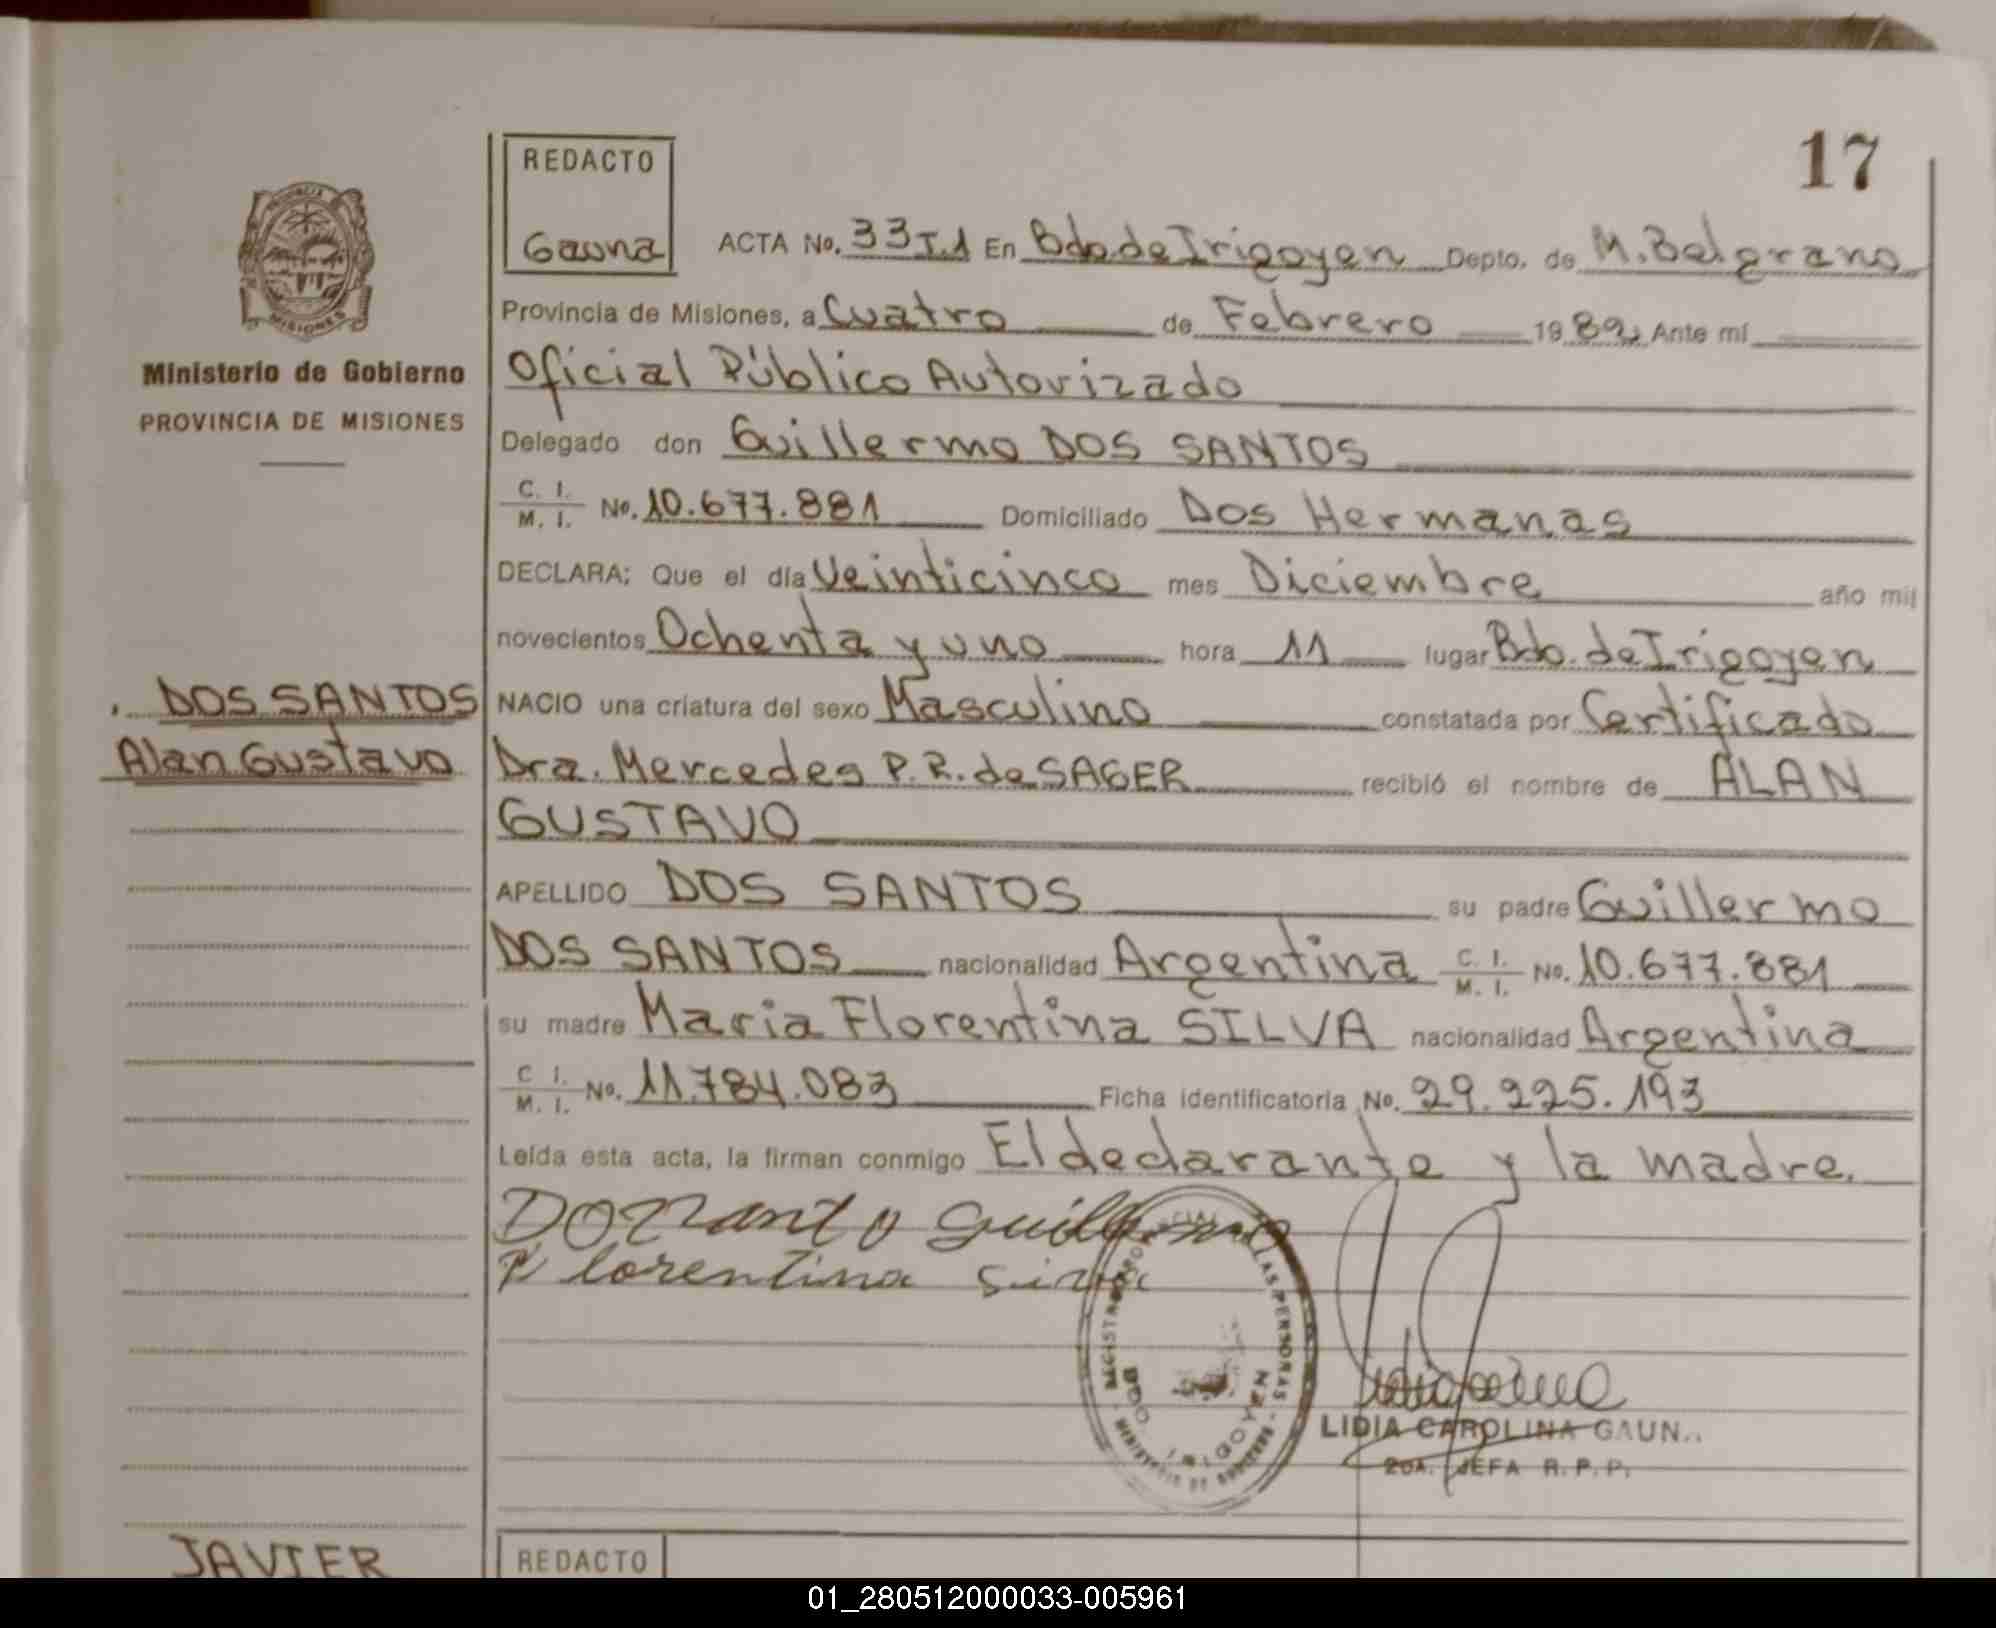 17
REDACTO
Gauna
ACTA No. 33 T.1 En Bdo. de Irigoyen Depto. de M. Belgrano
Provincia de Misiones, a Cuatro de Febrero 1982, Ante mí
Ministerio de Gobierno
PROVINCIA DE MISIONES
Oficial Público Autorizado
Delegado don Guillermo DOS SANTOS
C. I.
M. I. No. 10.677.881 Domiciliado Dos Hermanas
DECLARA; Que el día Veinticinco mes Diciembre año mil
novecientos Ochenta y uno hora 11 lugar Bdo. de Irigoyen
DOS SANTOS
Alan Gustavo
NACIO una criatura del sexo Masculino constatada por Certificado
Dra. Mercedes P. R. de SAGER recibió el nombre de ALAN
GUSTAVO
APELLIDO DOS SANTOS su padre Guillermo
DOS SANTOS nacionalidad Argentina C. I. M. I. No. 10.677.881
su madre Maria Florentina SILVA nacionalidad Argentina
C I. M. I. No. 11.784.083 Ficha identificatoria No. 29.225.193
Leída esta acta, la firman conmigo El declarante y la madre.
Guillermo
Florentina
REGISTRO PROVINCIAL LAS PERSONAS
BDO IRIGOYEN
MINISTERIO DE GOBIERNO
LIDIA CAROLINA GAUN
JEFA R. P. P.
JAVIER
REDACTO
01_280512000033-005961